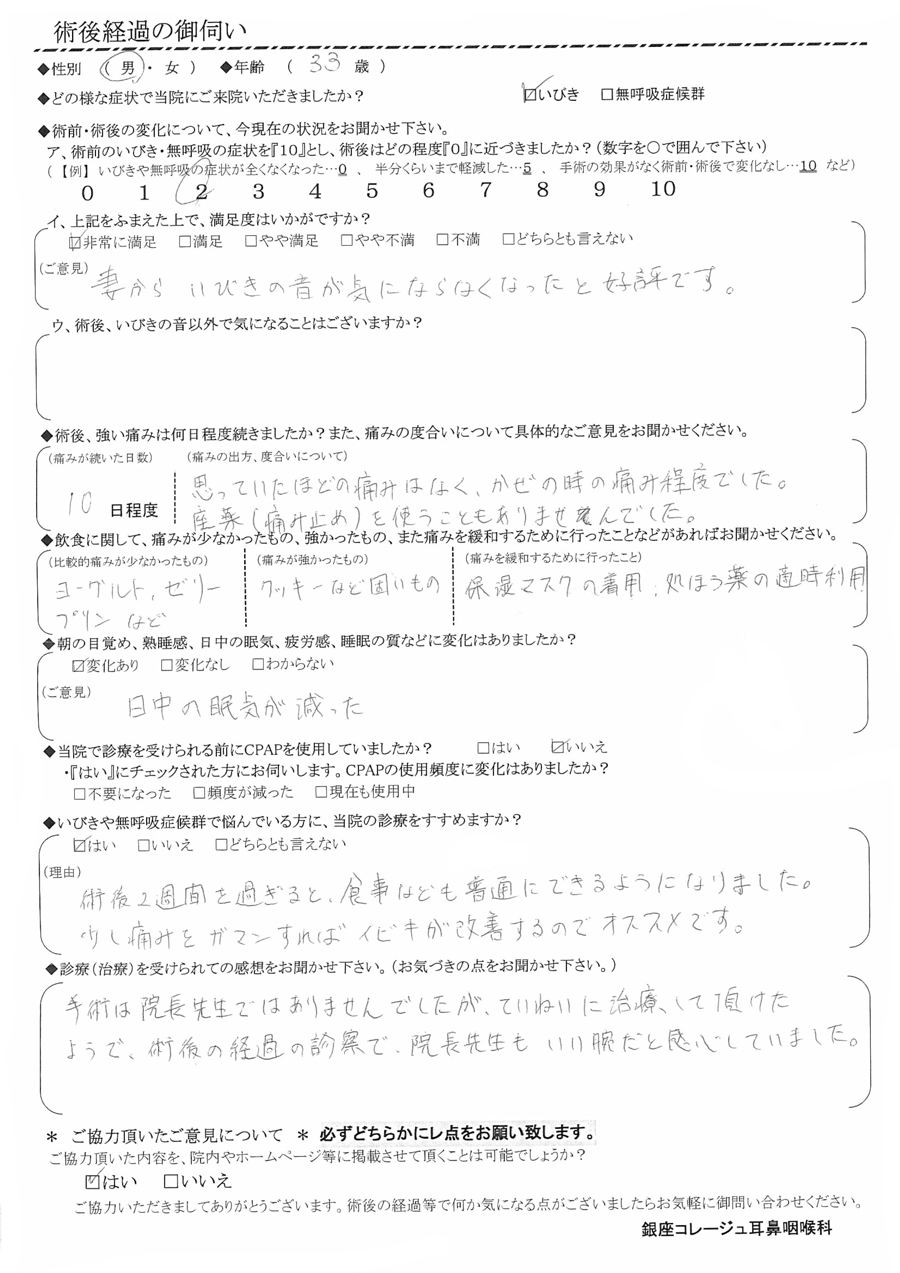 術後経過の御伺い
◆性別 ( 男 ・ 女 ) ◆年齢 ( 33 歳 )
◆どの様な症状で当院にご来院いただきましたか? ☑いびき □無呼吸症候群
◆術前・術後の変化について、今現在の状況をお聞かせ下さい。
ア、術前のいびき・無呼吸の症状を『10』とし、術後はどの程度『0』に近づきましたか?(数字を〇で囲んで下さい)
(【例】いびきや無呼吸の症状が全くなくなった…0 、 半分くらいまで軽減した…5 、 手術の効果がなく術前・術後で変化なし…10 など)
0 1 2 3 4 5 6 7 8 9 10
イ、上記をふまえた上で、満足度はいかがですか?
☑非常に満足 □満足 □やや満足 □やや不満 □不満 □どちらとも言えない
(ご意見)
妻から いびきの音が気にならなくなったと好評です。
ウ、術後、いびきの音以外で気になることはございますか?
◆術後、強い痛みは何日程度続きましたか?また、痛みの度合いについて具体的なご意見をお聞かせください。
(痛みが続いた日数) (痛みの出方、度合いについて)
10 日程度
思っていたほどの痛みはなく、かぜの時の痛み程度でした。
座薬(痛み止め)を使うこともありませんでした。
◆飲食に関して、痛みが少なかったもの、強かったもの、また痛みを緩和するために行ったことなどがあればお聞かせください。
(比較的痛みが少なかったもの) (痛みが強かったもの) (痛みを緩和するために行ったこと)
ヨーグルト,ゼリー クッキーなど固いもの 保湿マスクの着用,処ほう薬の適時利用
プリン など
◆朝の目覚め、熟睡感、日中の眠気、疲労感、睡眠の質などに変化はありましたか?
☑変化あり □変化なし □わからない
(ご意見)
日中の眠気が減った
◆当院で診療を受けられる前にCPAPを使用していましたか? □はい ☑いいえ
・『はい』にチェックされた方にお伺いします。CPAPの使用頻度に変化はありましたか?
□不要になった □頻度が減った □現在も使用中
◆いびきや無呼吸症候群で悩んでいる方に、当院の診療をすすめますか?
☑はい □いいえ □どちらとも言えない
(理由)
術後2週間を過ぎると、食事なども普通にできるようになりました。
少し痛みをガマンすればイビキが改善するのでオススメです。
◆診療(治療)を受けられての感想をお聞かせ下さい。(お気づきの点をお聞かせ下さい。)
手術は院長先生ではありませんでしたが、ていねいに治療、して頂けた
ようで、術後の経過の診察で、院長先生も いい腕だと感心していました。
＊ ご協力頂いたご意見について ＊ 必ずどちらかにレ点をお願い致します。
ご協力頂いた内容を、院内やホームページ等に掲載させて頂くことは可能でしょうか?
☑はい □いいえ
ご協力いただきましてありがとうございます。術後の経過等で何か気になる点がございましたらお気軽に御問い合わせください。
銀座コレージュ耳鼻咽喉科